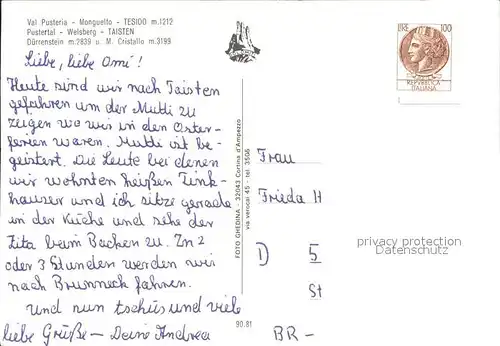 Val Pusteria - Monguelfo - TESIDO m.1212
Pustertal - Welsberg - TAISTEN
Dürrenstein m.2839 u. M. Cristallo m.3199
LIRE 100
REPVBBLICA
ITALIANA
Liebe, liebe Omi!
Heute sind wir nach Taisten
gefahren um der Mutti zu
zeigen wo wir in den Oster-
ferien waren. Mutti ist be-
geistert. Die Leute bei denen
wir wohnten heißen Tink-
hauser und ich sitze gerade
in der Küche und sehe der
Zita beim Backen zu. In 2
oder 3 Stunden werden wir
nach Brunneck fahren.
und nun tschüs und viele
liebe Grüße - Deine Andrea
FOTO GHEDINA - 32043 Cortina d'Ampezzo
via verocai 45 - tel 3506
90.81
Frau
Frieda H
D 5
St
BR-
privacy protection
Datenschutz